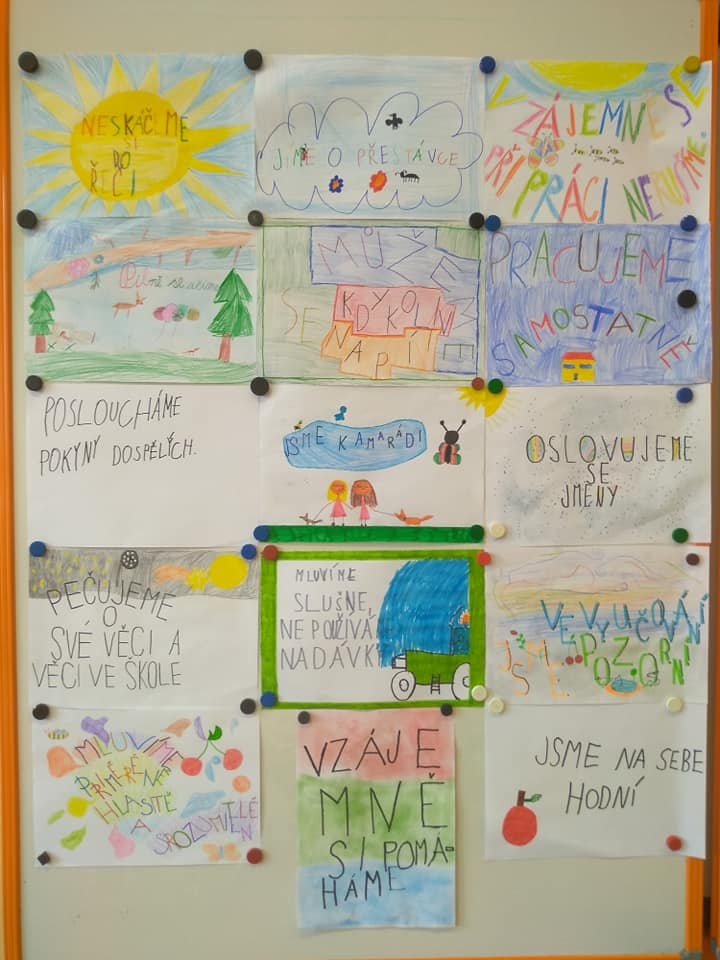 NESKÁČEME
SI
DO
ŘEČI
JÍME O PŘESTÁVCE
VZÁJEMNĚ SI
PŘI PRÁCI NERUŠÍME.
Pilně se učíme
MŮŽEME
SE KDYKOLIV
NAPÍT
PRACUJEME
SAMOSTATNĚ
POSLOUCHÁME
POKYNY DOSPĚLÝCH.
JSME KAMARÁDI
OSLOVUJEME
SE
JMÉNY
PEČUJEME
O
SVÉ VĚCI A
VĚCI VE ŠKOLE
MLUVÍME
SLUŠNĚ,
NEPOUŽÍVÁ
NADÁVKY
VE VYUČOVÁNÍ
JSME POZORNÍ
MLUVÍME
PŘIMĚŘENĚ
HLASITĚ
A SROZUMITELNĚ
VZÁJE
MNĚ
SI POMÁ-
HÁME
JSME NA SEBE
HODNÍ